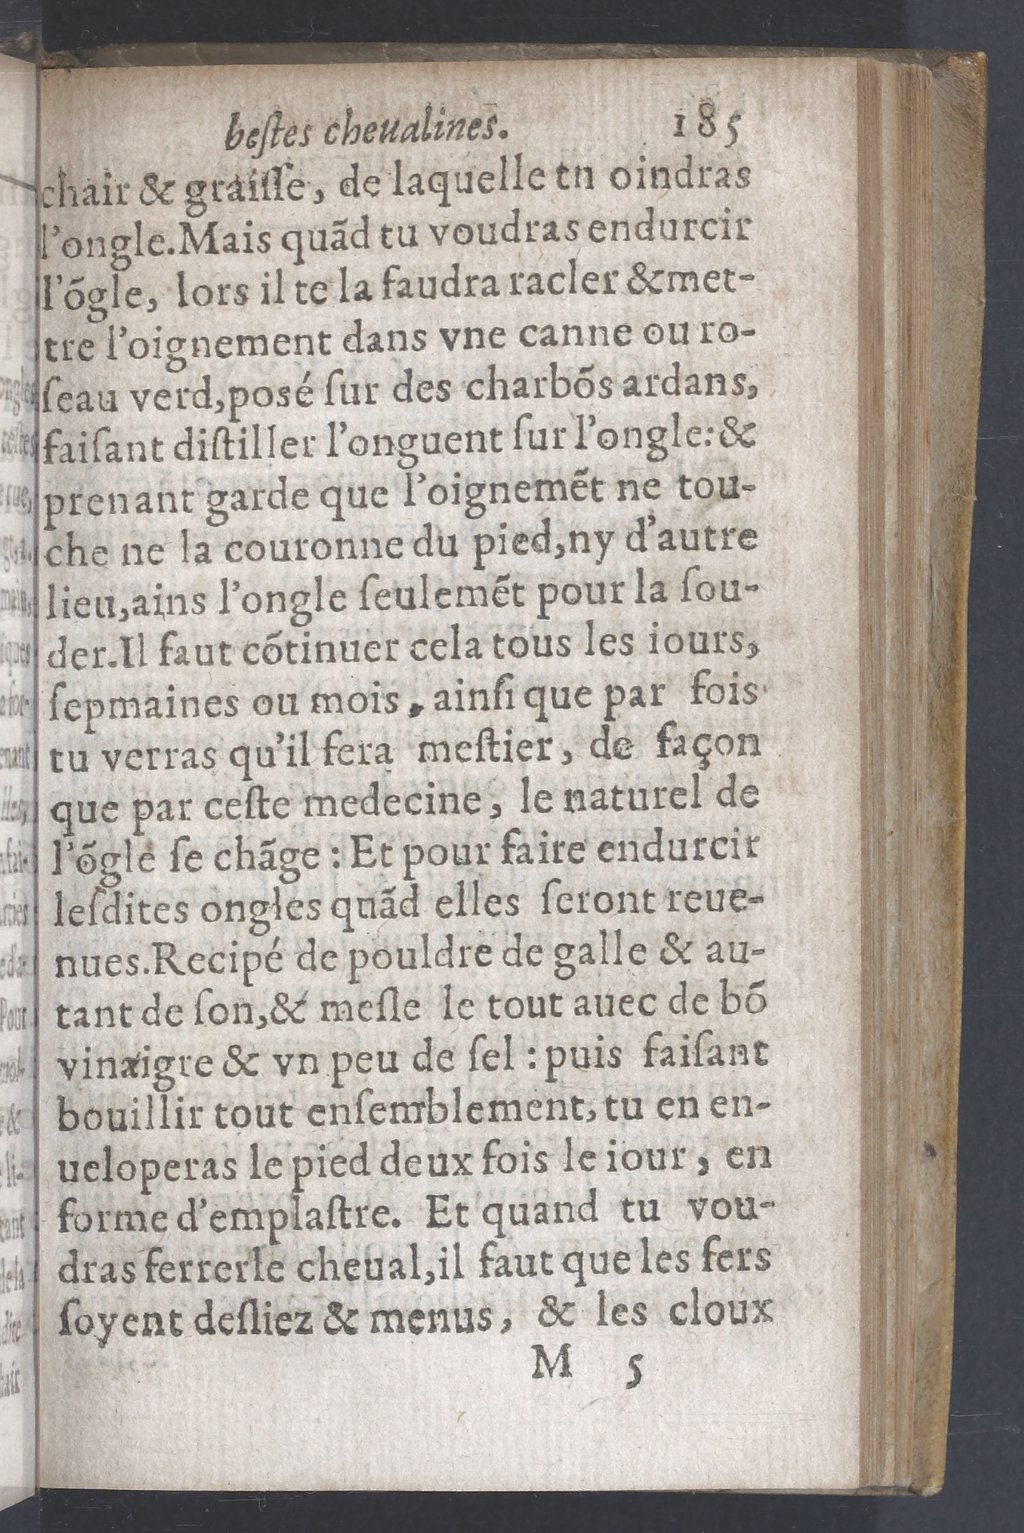 beſtes cheualines. 185
chair & graiſſe, de laquelle tn oindras
l'ongle. Mais quãd tu voudras endurcir
l'õgle, lors il te la faudra racler & met-
tre l'oignement dans vne canne ou ro-
ſeau verd, posé ſur des charbõs ardans,
faiſant diſtiller l'onguent ſur l'ongle: &
prenant garde que l'oignemẽt ne tou-
che ne la couronne du pied, ny d'autre
lieu, ains l'ongle ſeulemẽt pour la ſou-
der. Il faut cõtinuer cela tous les iours,
ſepmaines ou mois, ainſi que par fois
tu verras qu'il ſera meſtier, de façon
que par ceſte medecine, le naturel de
l'õgle ſe chãge : Et pour faire endurcir
leſdites ongles quãd elles ſeront reue-
nues. Recipé de pouldre de galle & au-
tant de ſon, & meſle le tout auec de bõ
vinaigre & vn peu de ſel : puis faiſant
bouillir tout enſemblement, tu en en-
ueloperas le pied deux fois le iour, en
forme d'emplaſtre. Et quand tu vou-
dras ferrer le cheual, il faut que les fers
ſoyent deſliez & menus, & les cloux
M 5